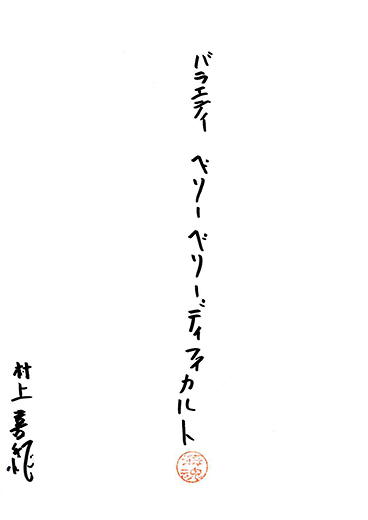 バラエティ ベリーベリーディフィカルト
村上